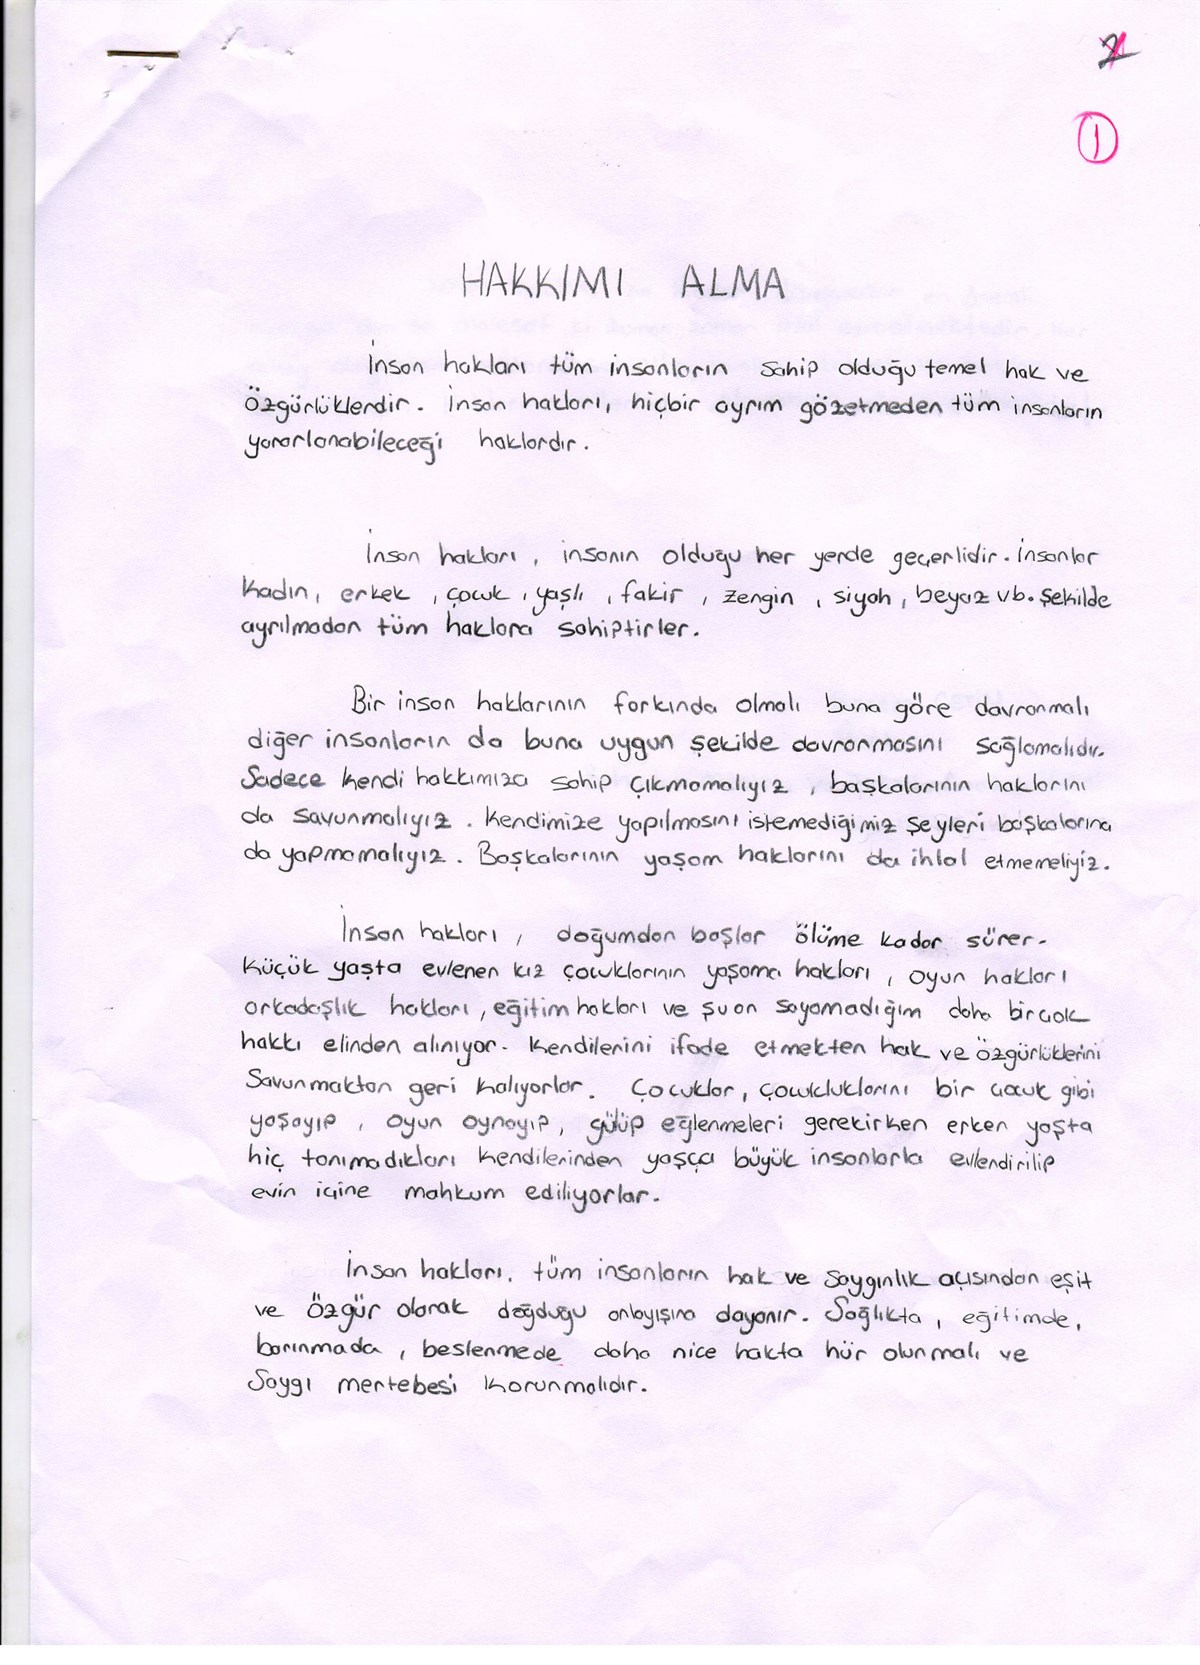 1
HAKKIMI ALMA
İnsan hakları tüm insanların sahip olduğu temel hak ve
özgürlüklerdir. İnsan hakları, hiçbir ayrım gözetmeden tüm insanların
yararlanabileceği haklardır.
İnsan hakları, insanın olduğu her yerde geçerlidir. İnsanlar
kadın, erkek, çocuk, yaşlı, fakir, zengin, siyah, beyaz vb. şekilde
ayrılmadan tüm haklara sahiptirler.
Bir insan haklarının farkında olmalı buna göre davranmalı
diğer insanların da buna uygun şekilde davranmasını sağlamalıdır.
Sadece kendi hakkımıza sahip çıkmamalıyız, başkalarının haklarını
da savunmalıyız. Kendimize yapılmasını istemediğimiz şeyleri başkalarına
da yapmamalıyız. Başkalarının yaşam haklarını da ihlal etmemeliyiz.
İnsan hakları, doğumdan başlar ölüme kadar sürer.
Küçük yaşta evlenen kız çocuklarının yaşama hakları, oyun hakları
arkadaşlık hakları, eğitim hakları ve şu an sayamadığım daha birçok
hakkı elinden alınıyor. Kendilerini ifade etmekten hak ve özgürlüklerini
savunmaktan geri kalıyorlar. Çocuklar, çocukluklarını bir çocuk gibi
yaşayıp, oyun oynayıp, gülüp eğlenmeleri gerekirken erken yaşta
hiç tanımadıkları kendilerinden yaşça büyük insanlarla evlendirilip
evin içine mahkum ediliyorlar.
İnsan hakları, tüm insanların hak ve saygınlık açısından eşit
ve özgür olarak doğduğu anlayışına dayanır. Sağlıkta, eğitimde,
barınmada, beslenmede daha nice hakta hür olunmalı ve
Saygı mertebesi korunmalıdır.